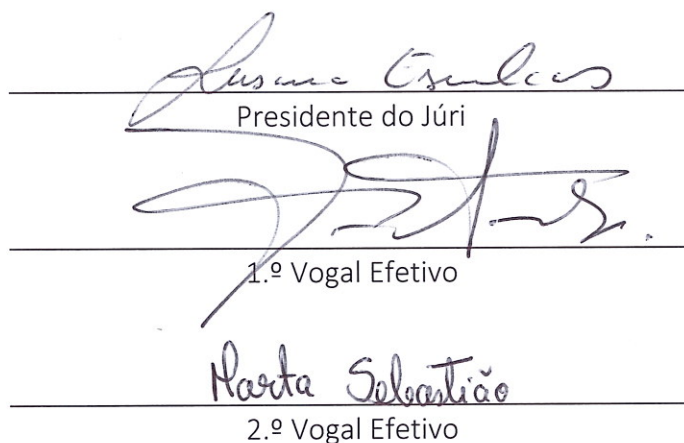 Susana
Presidente do Júri
1.º Vogal Efetivo
Marta Sebastião
2.º Vogal Efetivo